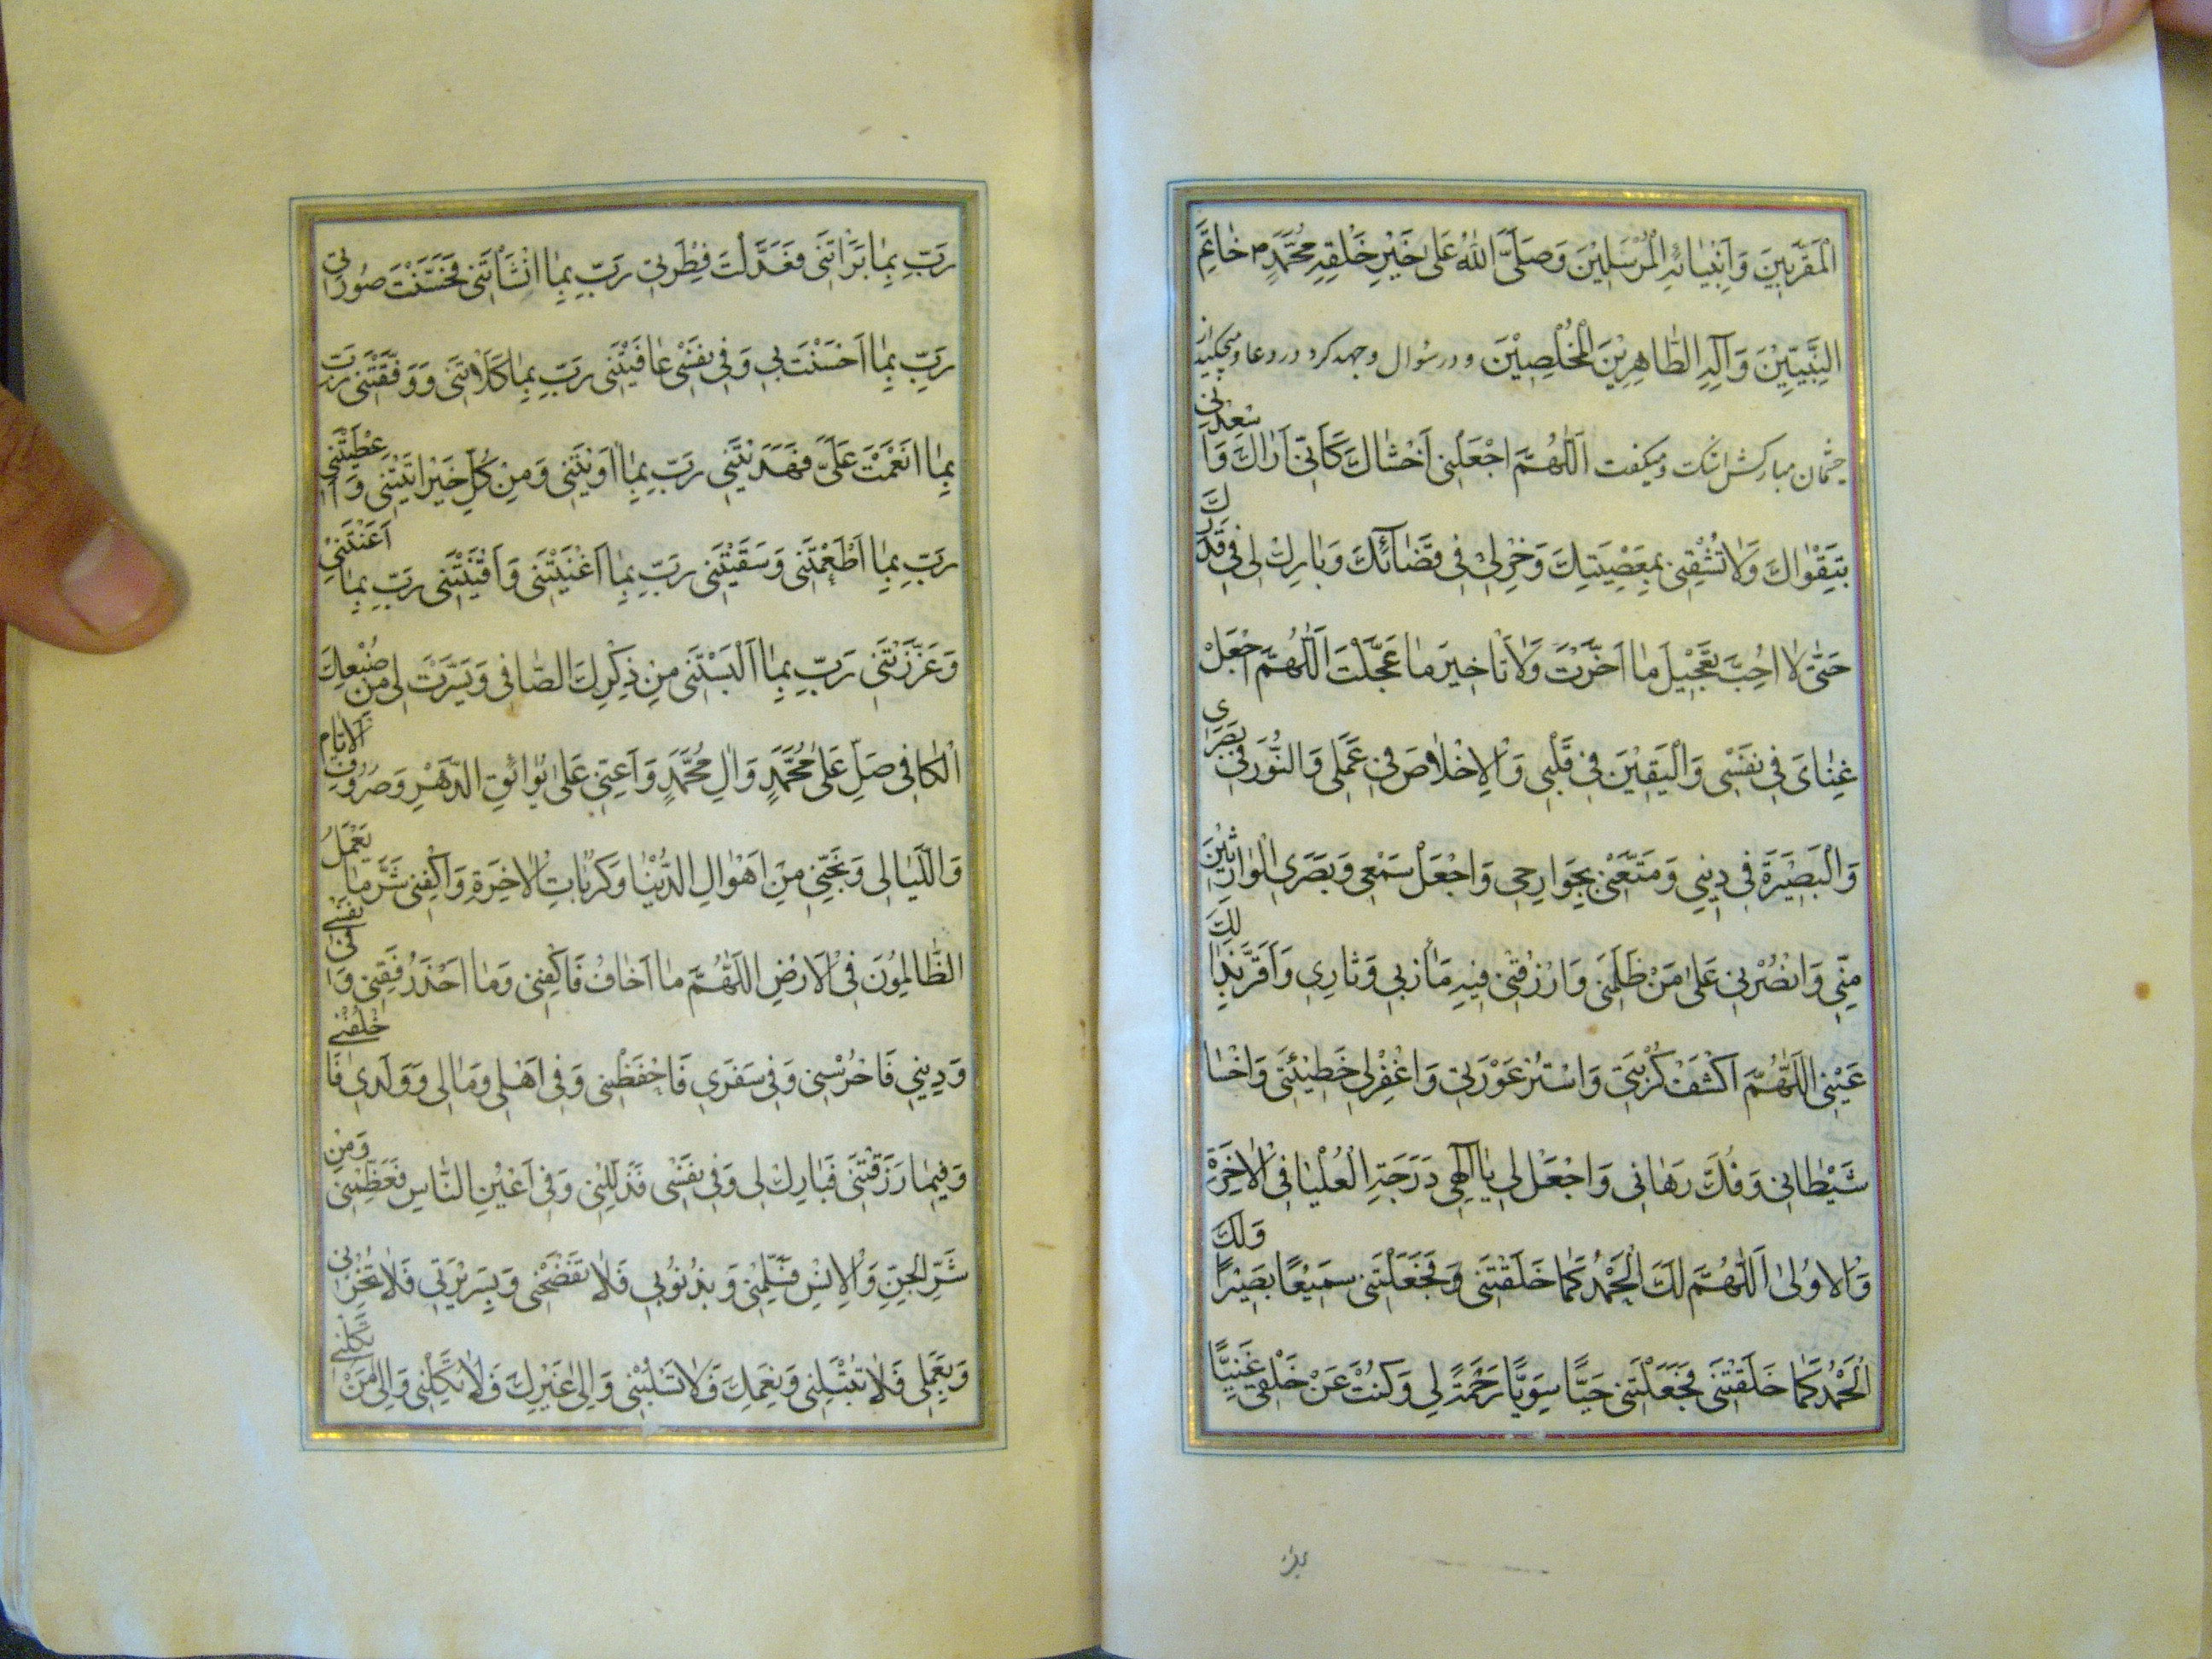 الْمُقَرَّبِينَ وَاَنْبِيٰائِهِ الْمُرْسَلِيْنَ وَصَلَّى اللهُ عَلٰى خَيْرِ خَلْقِهِ مُحَمَّدٍ خٰاتَمِ
النَّبِيّيْنَ وَآلِهِ الطّٰاهِرِيْنَ الْمُخْلِصِيْنَ و در سؤال و جهد كرد در دعا و ميچكيد از
چشمان مباركش اشك و ميكفت اَللّٰهُمَّ اجْعَلْنِى اَخْشٰاكَ كَاَنّى اَرٰاكَ وَاَسْعِدْنِى
بِتَقْوٰاكَ وَلٰا تُشْقِنِى بِمَعْصِيَتِكَ وَخِرْلِىْ فِى قَضٰائِكَ وَبٰارِكْ لِى فِى قَدَرِكَ
حَتّٰى لٰا اُحِبَّ تَعْجِيْلَ مٰا اَخَّرْتَ وَلٰا تٰاخِيرَ مٰا عَجَّلْتَ اَللّٰهُمَّ اجْعَلْ
غِنٰاىَ فِى نَفْسِى وَالْيَقِيْنَ فِى قَلْبِى وَالْاِخْلٰاصَ فِى عَمَلِى وَالنُّوْرَ فِى بَصَرِى
وَالْبَصِيْرَةَ فِى دِيِنِى وَمَتِّعْنِى بِجَوٰارِحِى وَاجْعَلْ سَمْعِى وَبَصَرِى الْوٰارِثَيْنِ
مِنِّى وَانْصُرْنِى عَلٰى مَنْ ظَلَمَنِى وَارْزُقْنِى فِيْهِ مَأْرَبِى وَثٰارِى وَاَقِرَّ بِذٰلِكَ
عَيْنِى اَللّٰهُمَّ اكْشِفْ كُرْبَتِى وَاسْتُرْ عَوْرَتِى وَاغْفِرْلِى خَطِيْئَتِى وَاخْسٰا
شَيْطٰانِى وَفُكَّ رَهٰانِى وَاجْعَلْ لِى يٰا اِلٰهِى دَرَجَةَ الْعُلْيٰا فِى الْاٰخِرَةِ
وَالْاُوْلٰى اَللّٰهُمَّ لَكَ الْحَمْدُ كَمٰا خَلَقْتَنِى وَفَجَعَلْتَنِى سَمِيْعًا بَصِيْرًا وَلَكَ
الْحَمْدُ كَمٰا خَلَقْتَنِى فَجَعَلْتَنِى حَيًّا سَوِيًّا رَحْمَةً لِى وَكُنْتَ عَنْ خَلْقِى غَنِيًّا
رَبِّ بِمٰا بَرَاْتَنِى فَعَدَّلْتَ فِطْرَتِى رَبّ بِمٰا اَنْشَاْتَنِى فَحَسَّنْتَ صُوْرَتِى
رَبِّ بِمٰا اَحْسَنْتَ بِى وَفِى نَفْسِى عٰافَيْتَنِى رَبّ بِمٰا كَلَاْتَنِى وَوَفَّقْتَنِى رَبّ
بِمٰا اَنْعَمْتَ عَلَىَّ فَهَدَيْتَنِى رَبّ بِمٰا اَوْيْتَنِى وَمِنْ كُلِّ خَيْرٍ اٰتَيْتَنِى وَاَعْطَيْتَنِى
رَبّ بِمٰا اَطْعَمْتَنِى وَسَقَيْتَنِى رَبّ بِمٰا اَغْنَيْتَنِى وَاَقْنَيْتَنِى رَبّ بِمٰا اَعَنْتَنِى
وَعَزَّزْتَنِى رَبّ بِمٰا اَلْبَسْتَنِى مِنْ ذِكْرِكَ الصّٰافِى وَيَسَّرْتَ لِى مِنْ صُنْعِكَ
الْكٰافِى صَلِّ عَلٰى مُحَمَّدٍ وَاٰلِ مُحَمَّدٍ وَاَعِنِّى عَلٰى بَوٰائِقِ الدَّهْرِ وَصُرُوْفِ الْاَيّٰامِ
وَاللَّيٰالِى وَنَجِّنِى مِنْ اَهْوٰالِ الدُّنْيٰا وَكُرُبٰاتِ الْاٰخِرَةِ وَاكْفِنِى شَرَّ مٰا يَعْمَلُ
الظّٰالِمُوْنَ فِى الْاَرْضِ اَللّٰهُمَّ مٰا اَخٰافُ فَاكْفِنِى وَمٰا اَحْذَرُ فَقِنِى وَفِى نَفْسِى
وَدِيِنِى فَاحْرُسْنِى وَفِى سَفَرِى فَاحْفَظْنِى وَفِى اَهْلِى وَمٰالِى وَوَلَدِى فَاخْلُفْنِى
وَفِيْمٰا رَزَقْتَنِى فَبٰارِكْ لِى وَفِى نَفْسِى فَذَلِّلْنِى وَفِى اَعْيُنِ النّٰاسِ فَعَظِّمْنِى وَمِنْ
شَرِّ الْجِنِّ وَالْاِنْسِ فَسَلِّمْنِى وَبِذُنُوْبِى فَلٰا تَفْضَحْنِى وَبِسَرِيْرَتِى فَلٰا تُخْزِنِى
وَبِعَمَلِى فَلٰا تَبْتَلِنِى وَنِعَمِكَ فَلٰا تَسْلُبْنِى وَاِلٰى غَيْرِكَ فَلٰا تَكِلْنِى وَاِلٰى مَنْ تَكِلْنِى